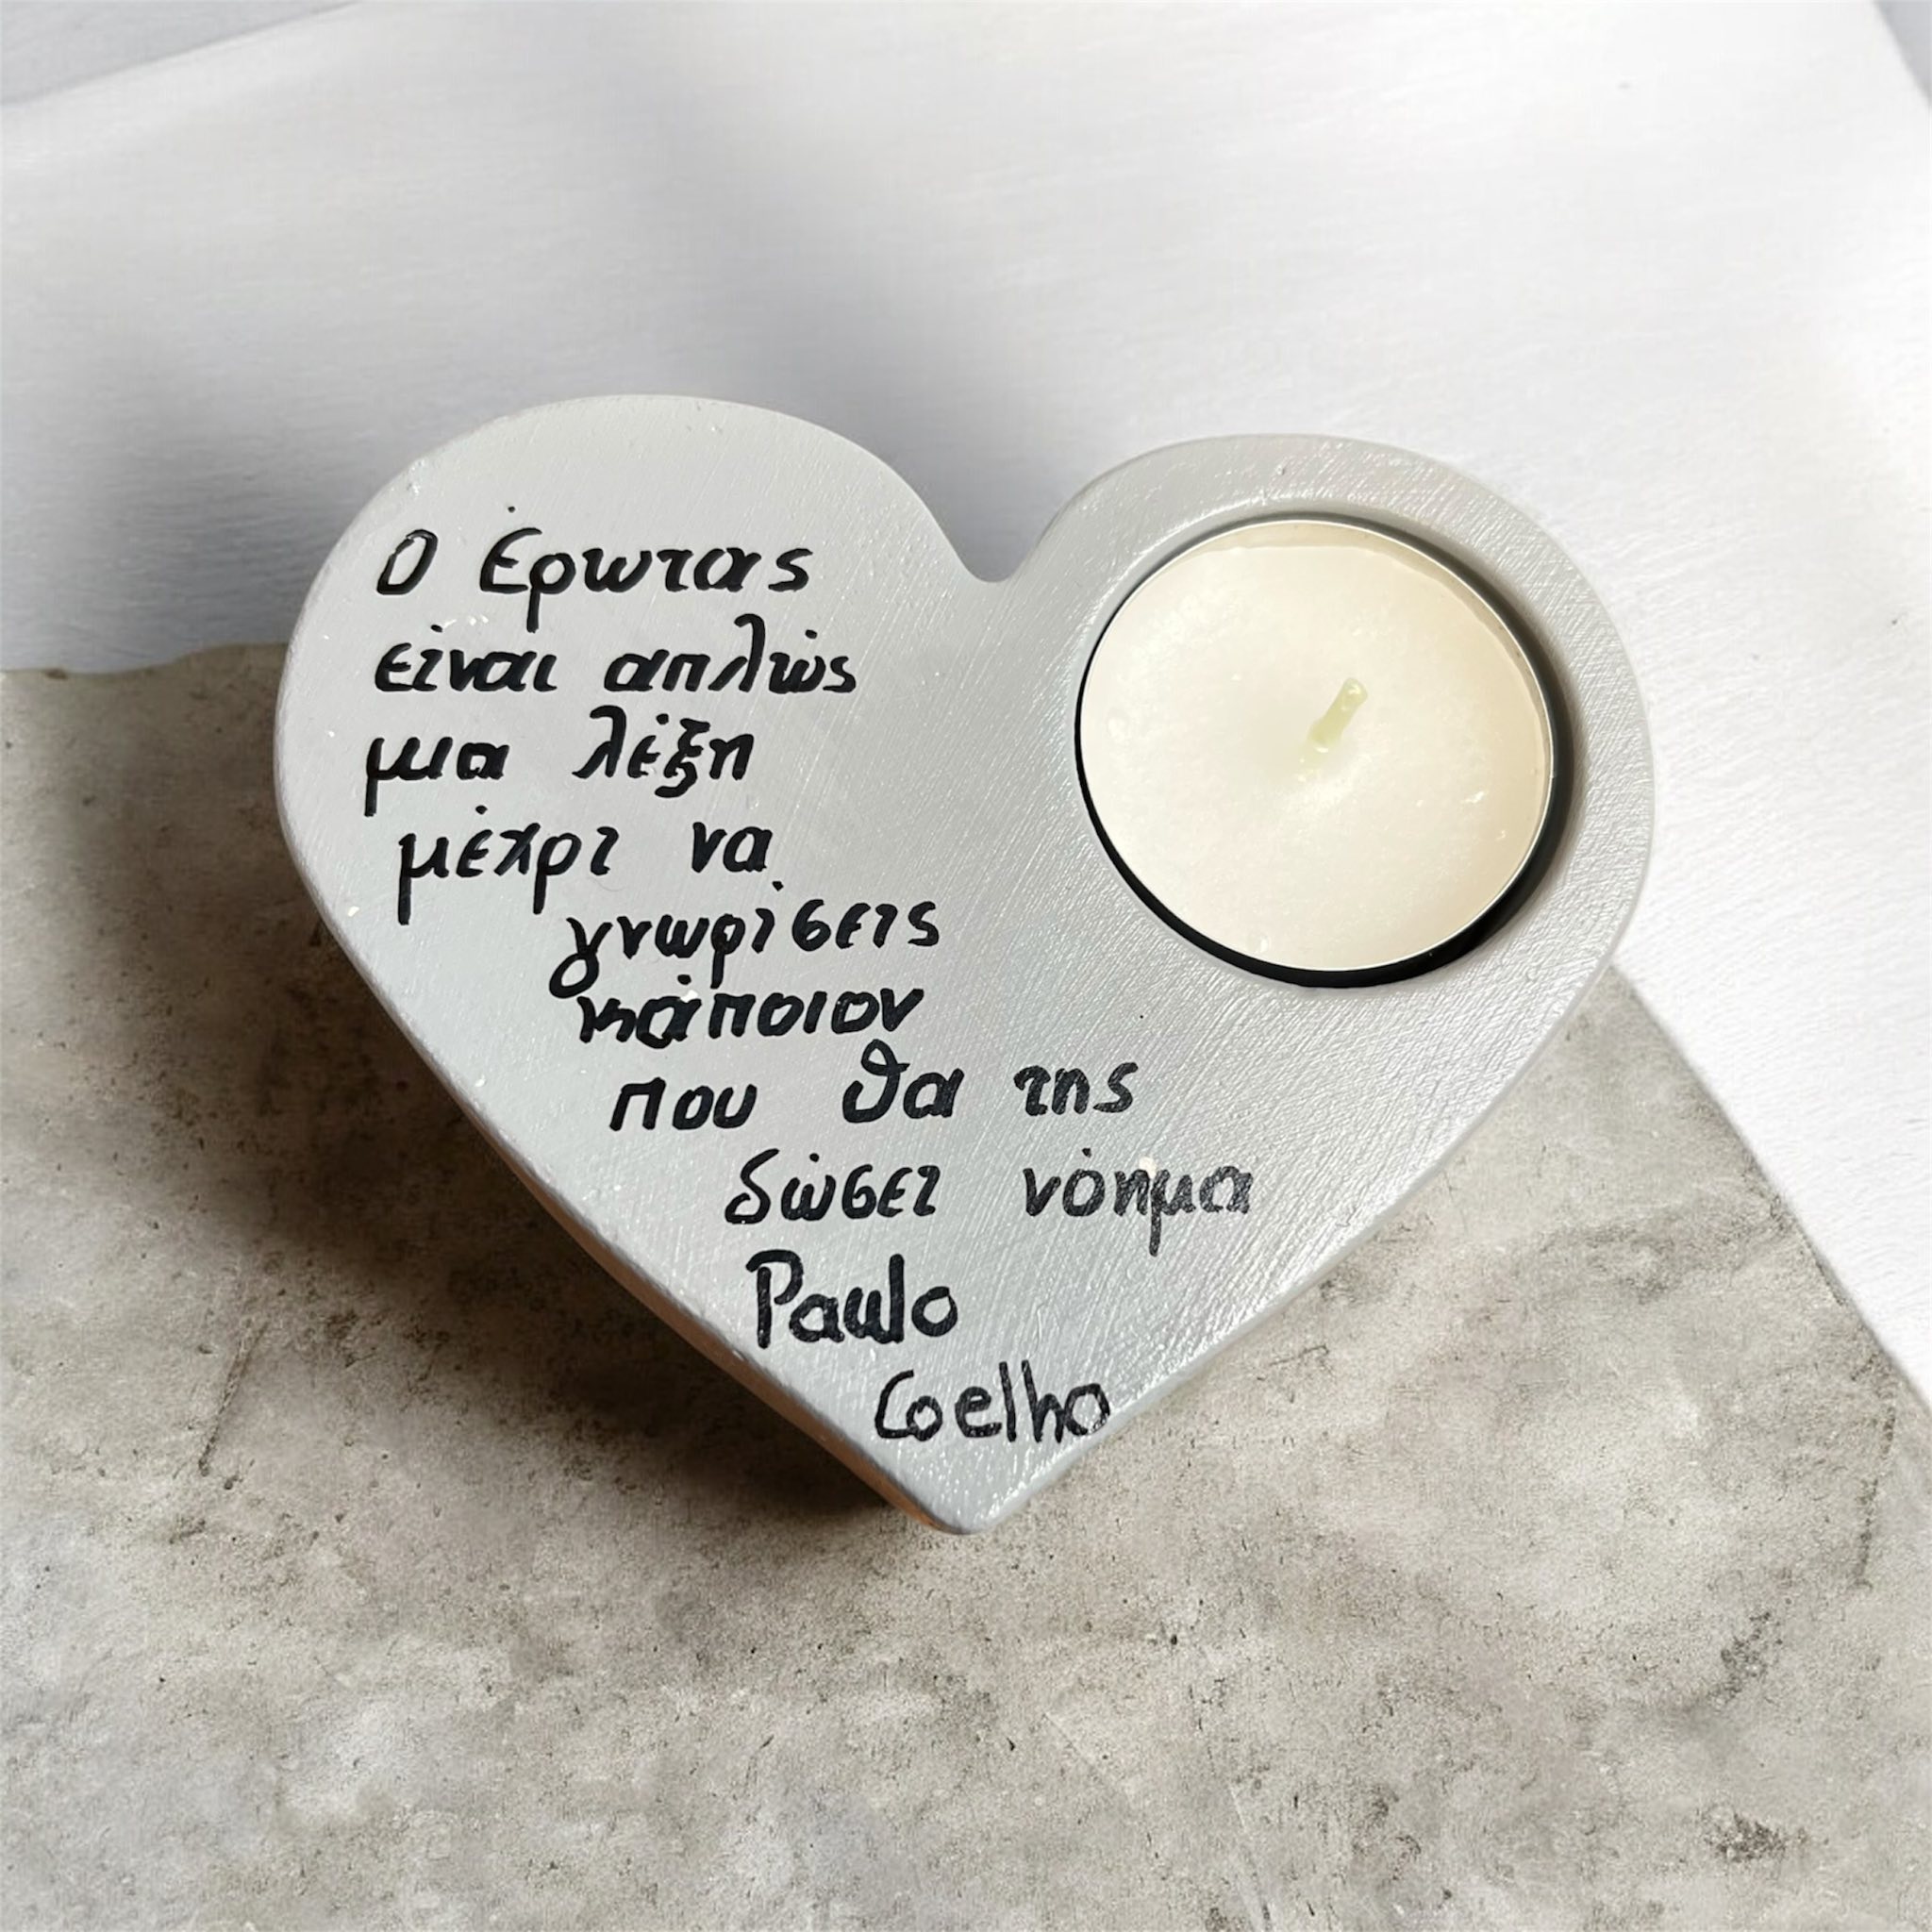 Ο Έρωτας
είναι απλώς
μια λέξη
μέχρι να
γνωρίσεις
κάποιον
που θα της
δώσει νόημα
Paulo
Coelho